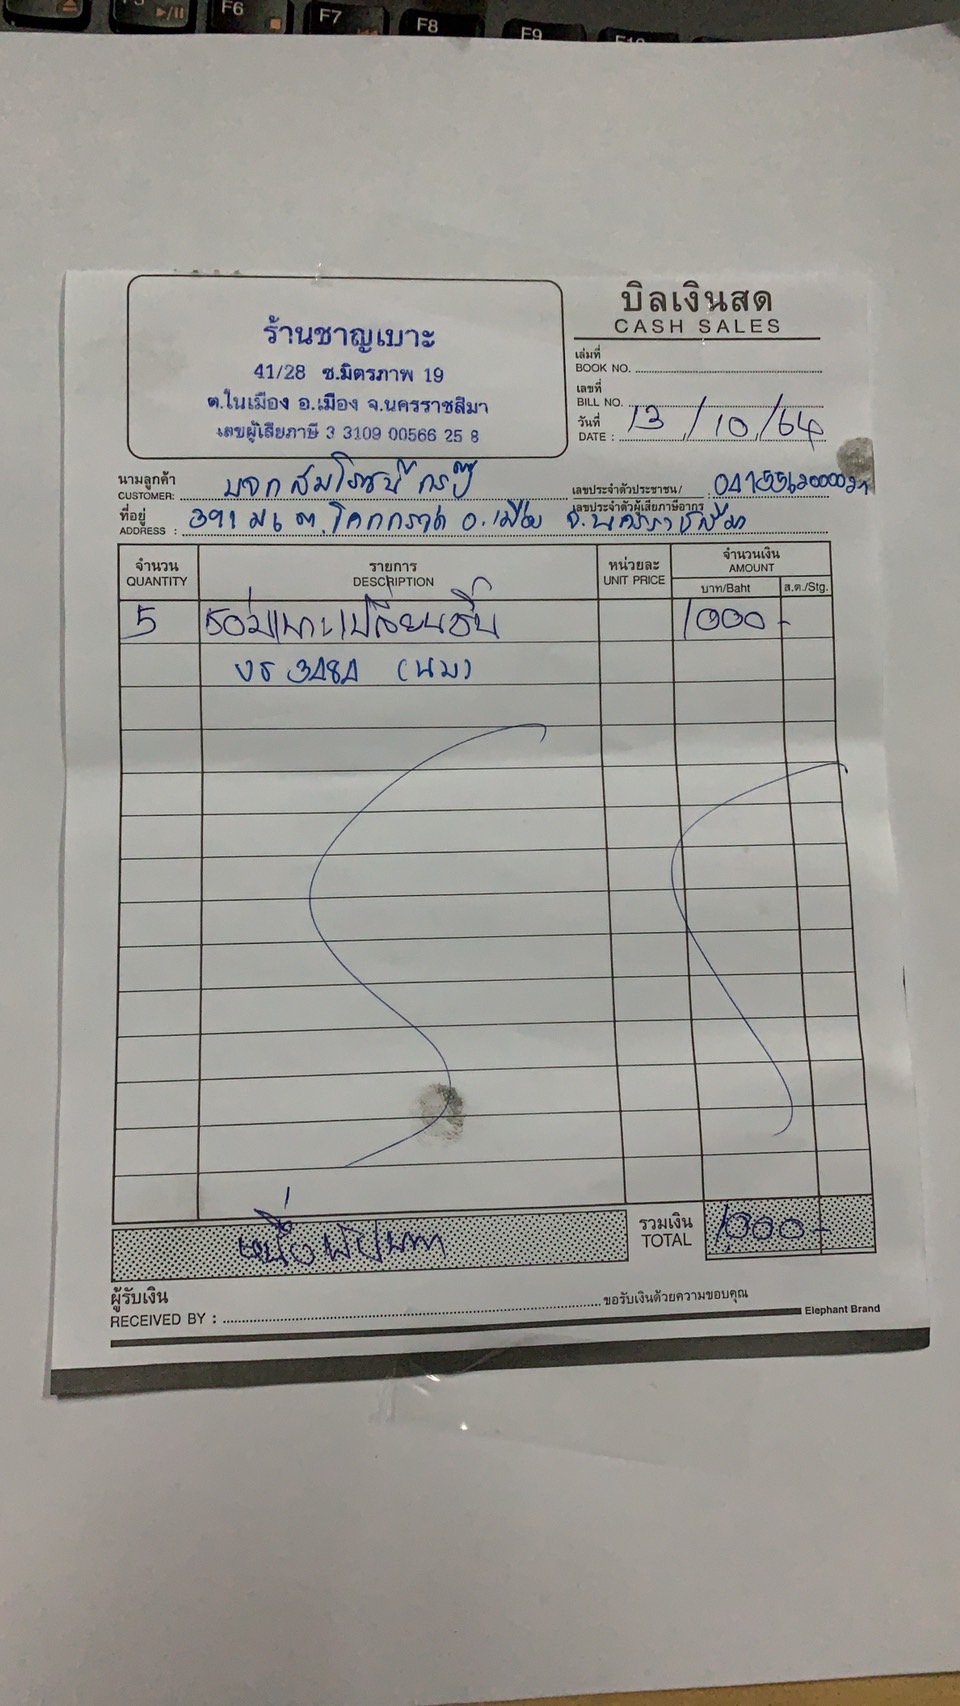 F6
F7
F8
F9
F10
ร้านชาญเบาะ
41/28 ซ.มิตรภาพ 19
ต.ในเมือง อ.เมือง จ.นครราชสีมา
เลขผู้เสียภาษี 3 3109 00566 25 8
บิลเงินสด
CASH SALES
เล่มที่
BOOK NO.
เลขที่
BILL NO.
วันที่
DATE : 13/10/64
นามลูกค้า
CUSTOMER: บจก สมโรจน์ กรุ๊ป
เลขประจำตัวประชาชน/
เลขประจำตัวผู้เสียภาษีอากร :
ที่อยู่
ADDRESS : 391 ม6 ต.โคกกรวด อ.เมือง จ.นครราชสีมา
จำนวน รายการ หน่วยละ จำนวนเงิน
QUANTITY DESCRIPTION UNIT PRICE AMOUNT
บาท/Baht ส.ต./Stg.
5 ซ่อมเบาะเปลี่ยนชิ้น 1000 -
(นม)
หนึ่งพันบาท
รวมเงิน
TOTAL 1000 -
ผู้รับเงิน
RECEIVED BY :
ขอรับเงินด้วยความขอบคุณ
Elephant Brand